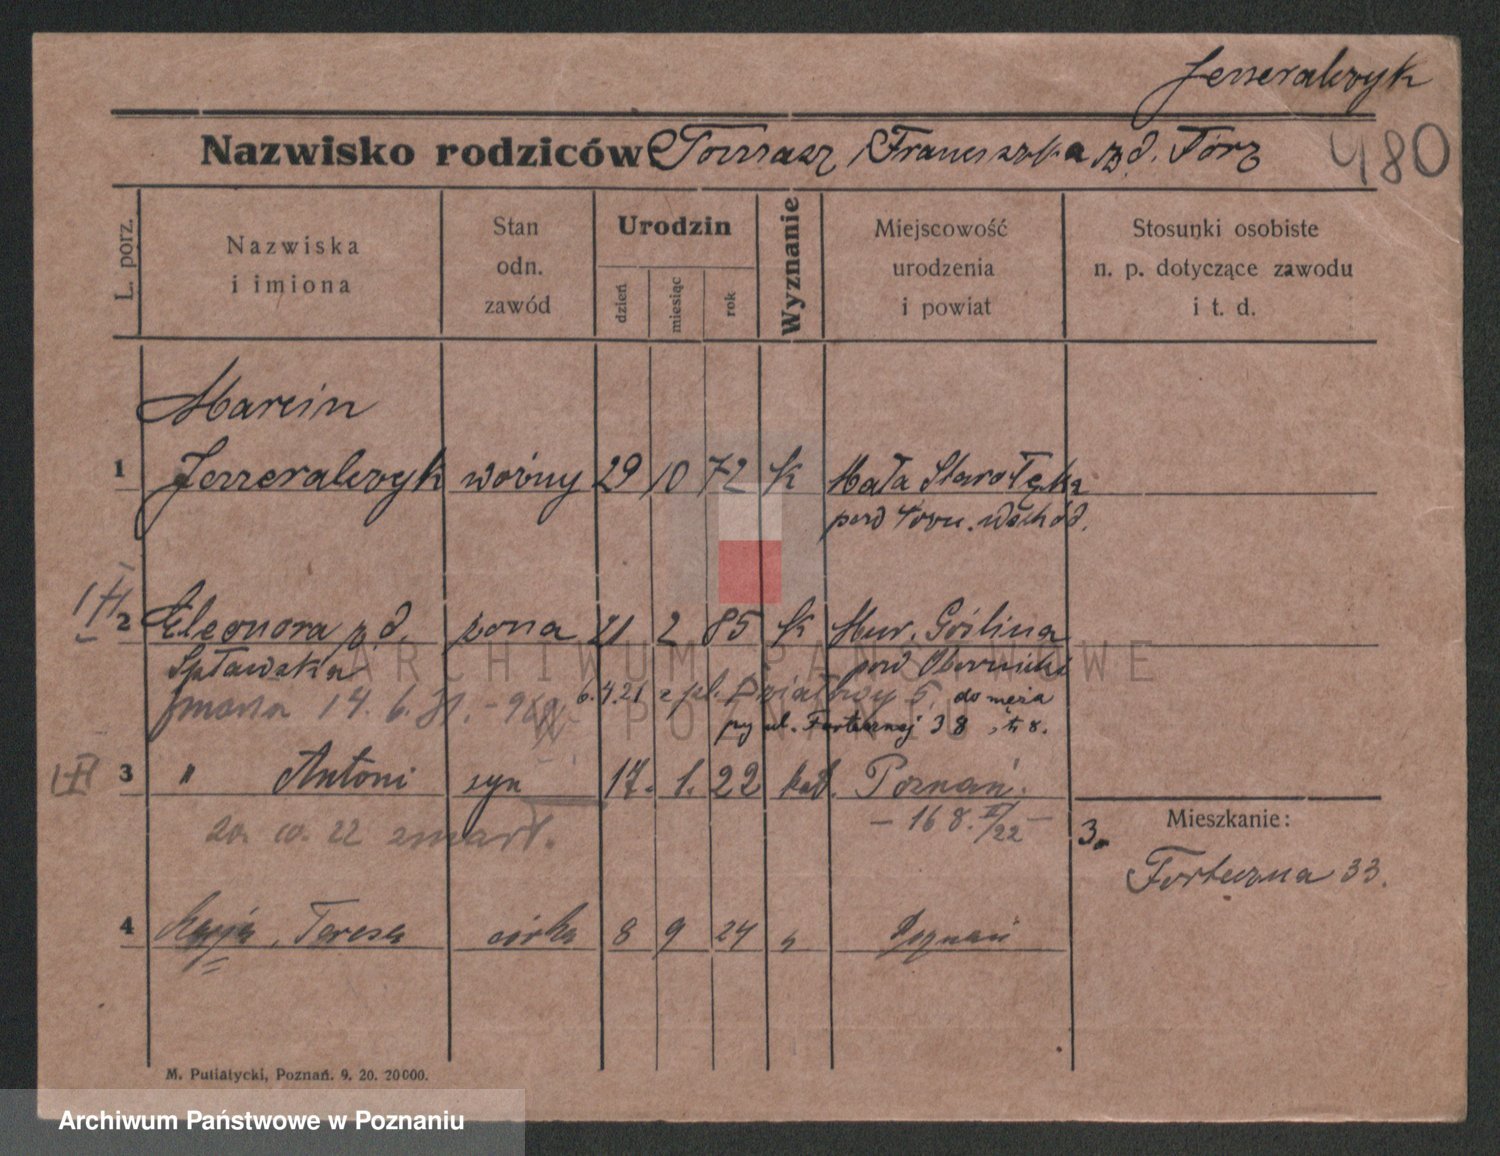 Jeneralczyk
Nazwisko rodziców Tomasz, Franciszka z d. Torz
480
L. porz.
Nazwiska
i imiona
Stan
odn.
zawód
Urodzin
dzień
miesiąc
rok
Wyznanie
Miejscowość
urodzenia
i powiat
Stosunki osobiste
n. p. dotyczące zawodu
i t. d.
Marcin
1 Jeneralczyk woźny 29 10 72 K Mała Starołęka
pow Pozn. wschód.
2 Eleonora z d. żona 21 2 85 K Mur. Goślina
Spławska pow Obornicki
zmarła 14. 6. 31. - 6.4.21 z pl. Działowy 5, do męża
przy ul. Fortecznej 38, 
3 " Antoni syn 17. 1. 22 kat. Poznań.
20. 10. 22 zmarł. - 168. II/22 -
Mieszkanie:
3. Forteczna 33.
4 Maria, Teresa córka 8 9 24 " Poznań
M. Putiatycki, Poznań. 9. 20. 20000.
ARCHIWUM PAŃSTWOWE
W POZNANIU
Archiwum Państwowe w Poznaniu